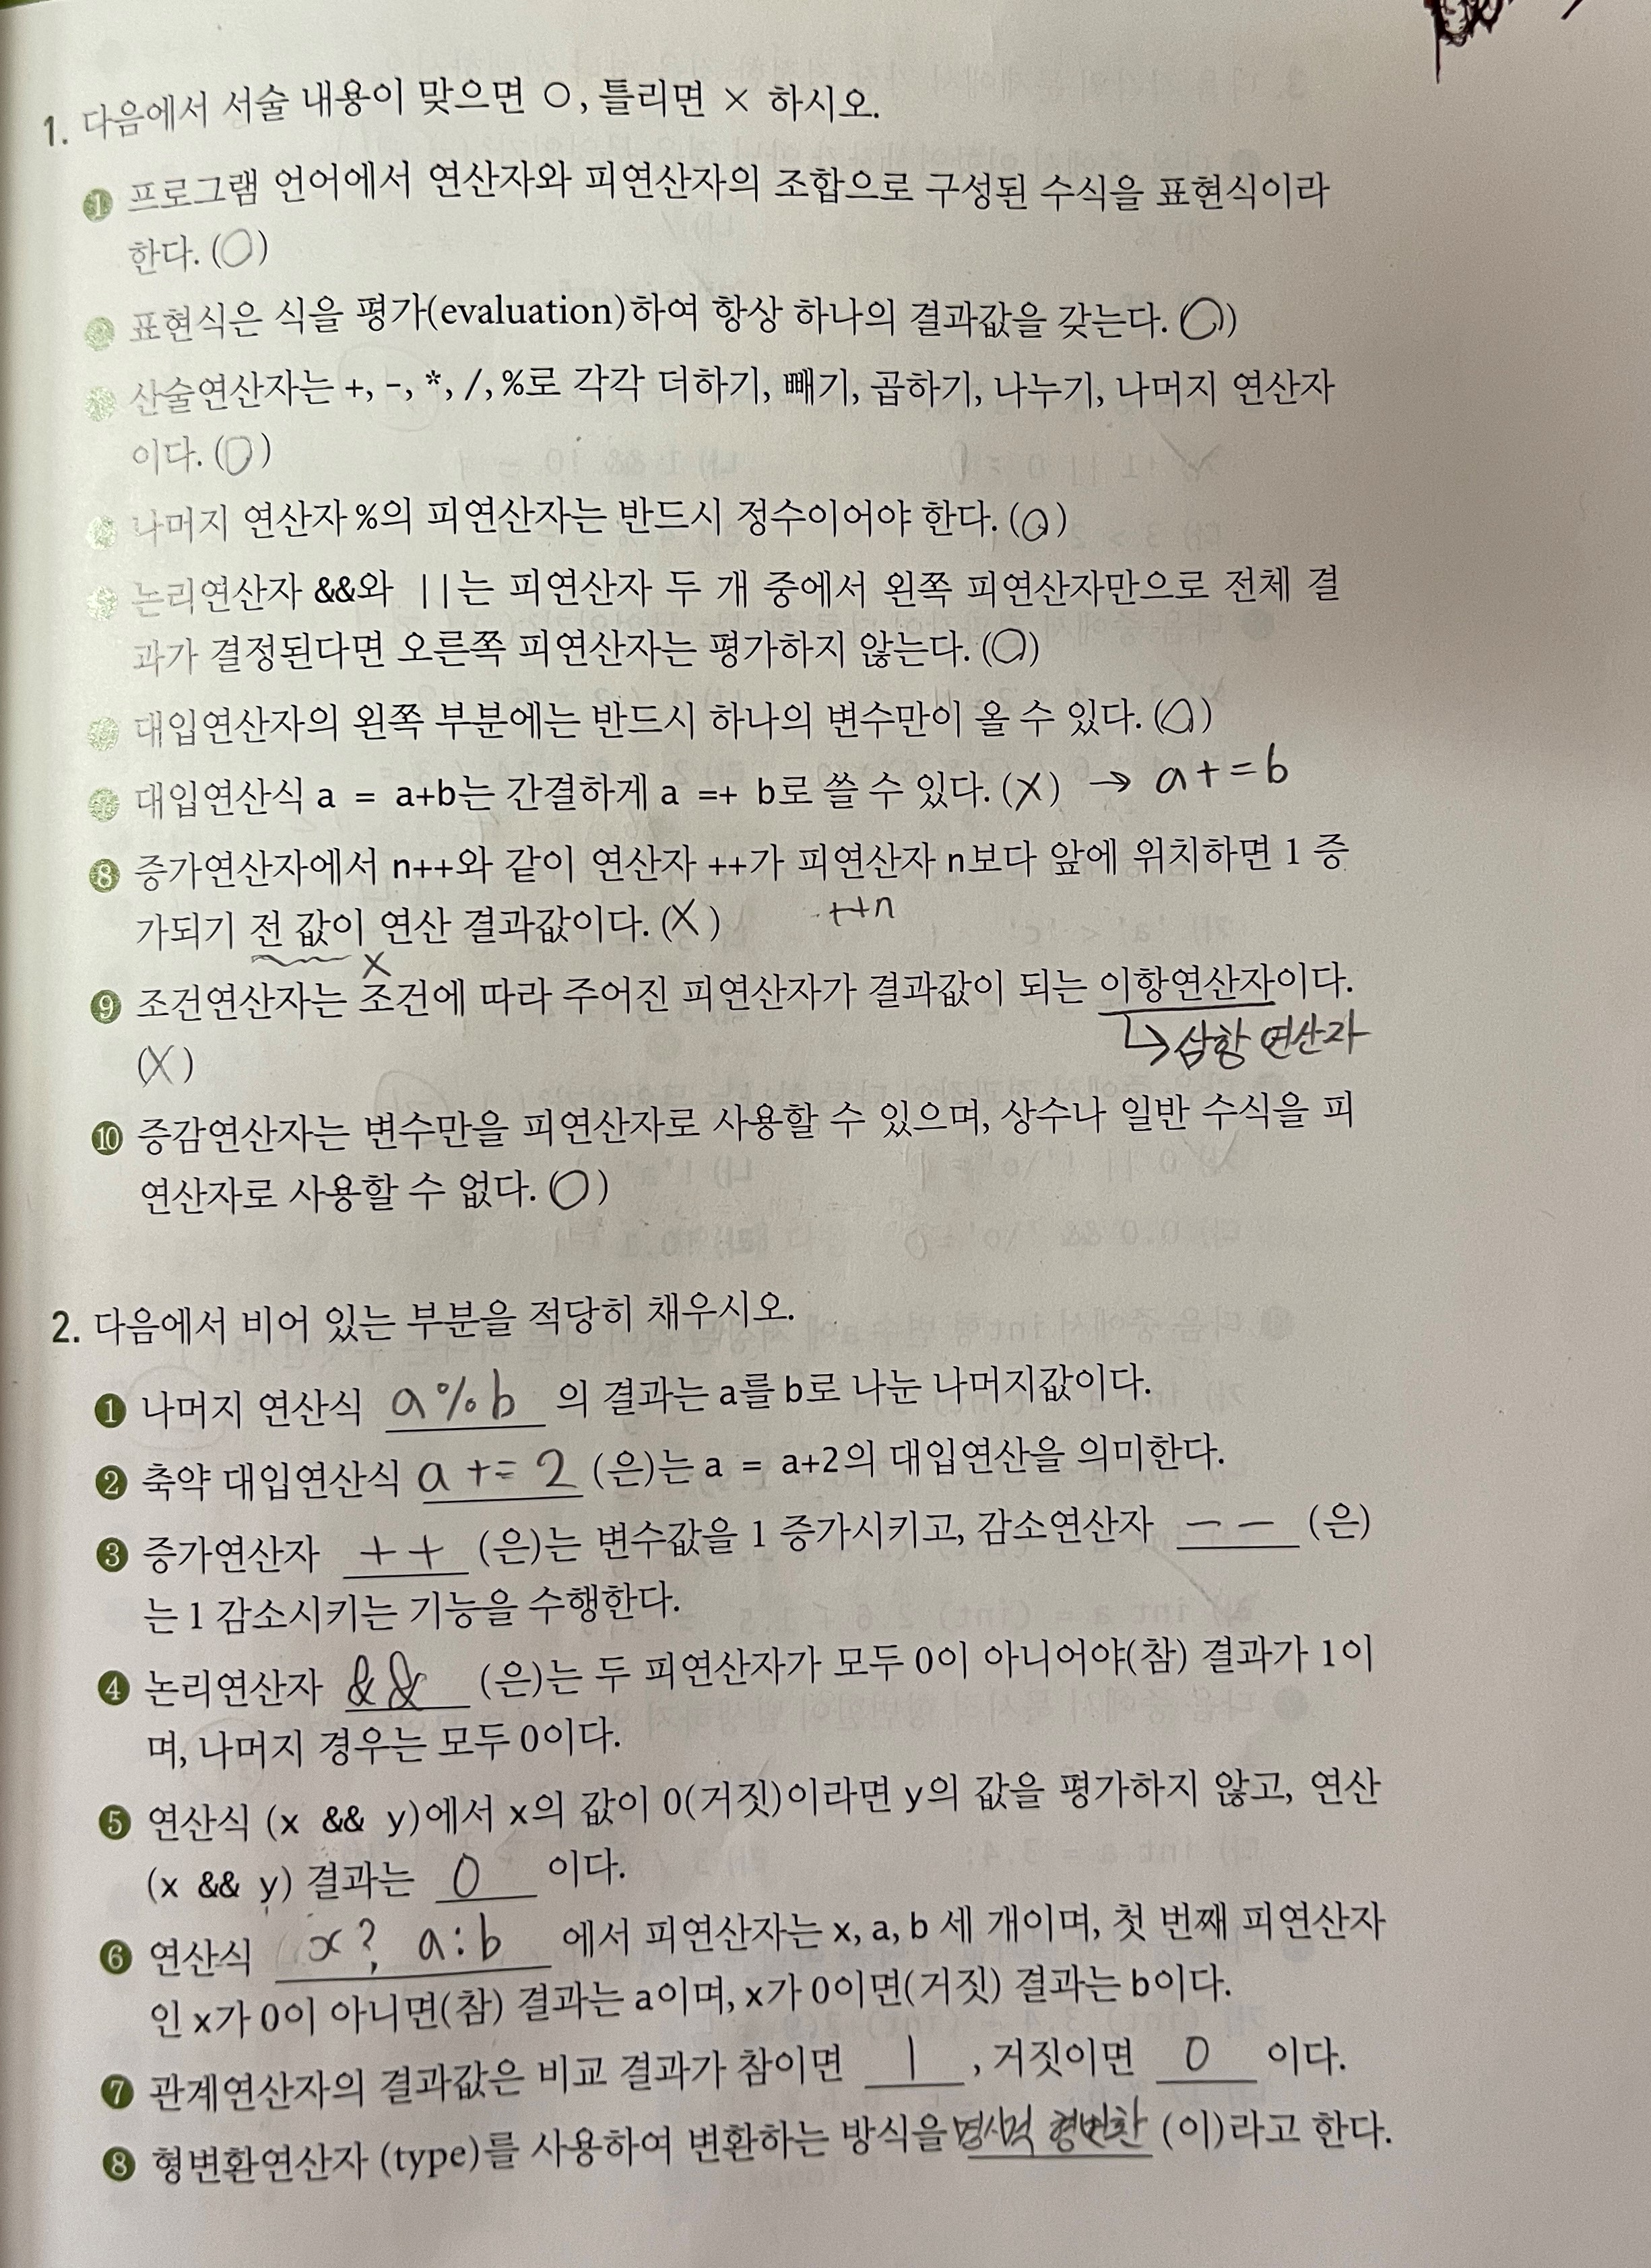 1. 다음에서 서술 내용이 맞으면 ○, 틀리면 × 하시오.
① 프로그램 언어에서 연산자와 피연산자의 조합으로 구성된 수식을 표현식이라
한다. (O)
② 표현식은 식을 평가(evaluation)하여 항상 하나의 결과값을 갖는다. (O)
③ 산술연산자는 +, -, *, /, %로 각각 더하기, 빼기, 곱하기, 나누기, 나머지 연산자
이다. (O)
④ 나머지 연산자 %의 피연산자는 반드시 정수이어야 한다. (O)
⑤ 논리연산자 &&와 ||는 피연산자 두 개 중에서 왼쪽 피연산자만으로 전체 결
과가 결정된다면 오른쪽 피연산자는 평가하지 않는다. (O)
⑥ 대입연산자의 왼쪽 부분에는 반드시 하나의 변수만이 올 수 있다. (O)
⑦ 대입연산식 a = a+b는 간결하게 a =+ b로 쓸 수 있다. (X) → a+=b
⑧ 증가연산자에서 n++와 같이 연산자 ++가 피연산자 n보다 앞에 위치하면 1 증
가되기 전 값이 연산 결과값이다. (X) ++n
X
⑨ 조건연산자는 조건에 따라 주어진 피연산자가 결과값이 되는 이항연산자이다.
↳삼항 연산자
(X)
⑩ 증감연산자는 변수만을 피연산자로 사용할 수 있으며, 상수나 일반 수식을 피
연산자로 사용할 수 없다. (O)
2. 다음에서 비어 있는 부분을 적당히 채우시오.
① 나머지 연산식 a%b 의 결과는 a를 b로 나눈 나머지값이다.
② 축약 대입연산식 a += 2 (은)는 a = a+2의 대입연산을 의미한다.
③ 증가연산자 ++ (은)는 변수값을 1 증가시키고, 감소연산자 -- (은)
는 1 감소시키는 기능을 수행한다.
④ 논리연산자 && (은)는 두 피연산자가 모두 0이 아니어야(참) 결과가 1이
며, 나머지 경우는 모두 0이다.
⑤ 연산식 (x && y)에서 x의 값이 0(거짓)이라면 y의 값을 평가하지 않고, 연산
(x && y) 결과는 0 이다.
⑥ 연산식 x? a:b 에서 피연산자는 x, a, b 세 개이며, 첫 번째 피연산자
인 x가 0이 아니면(참) 결과는 a이며, x가 0이면(거짓) 결과는 b이다.
⑦ 관계연산자의 결과값은 비교 결과가 참이면 1, 거짓이면 0 이다.
⑧ 형변환연산자 (type)를 사용하여 변환하는 방식을 명시적 형변환 (이)라고 한다.